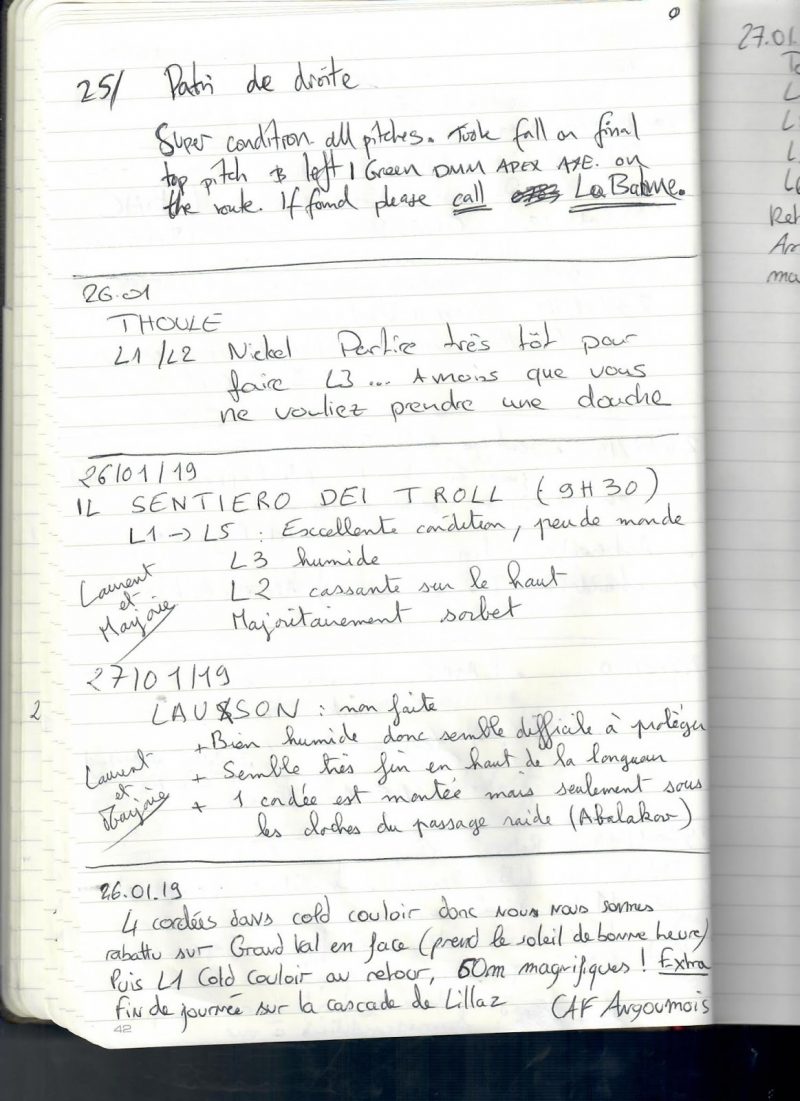 25/ Patri de droite
Super condition all pitches. Took fall on final
top pitch & left 1 Green DMM APEX AXE. on
the route. If found please call La Balme.
26.01
THOULE
L1 / L2 Nickel Partire très tôt pour
faire L3 ... A moins que vous
ne vouliez prendre une douche
26/01/19
IL SENTIERO DEI TROLL (9H30)
L1 -> L5 : Excellente condition, peu de monde
L3 humide
L2 cassante sur le haut
Majoritairement sorbet
Laurent
et
Marjorie
27/01/19
2
LAUSSON : non faite
+ Bien humide donc semble difficile à protéger
+ Semble très fin en haut de la longueur
+ 1 cordée est montée mais seulement sous
les cloches du passage raide (Abalakov)
Laurent
et
Marjorie
26.01.19
4 cordées dans cold couloir donc nous nous sommes
rabattu sur Grand Val en face (prend le soleil de bonne heure)
Puis L1 Cold Couloir au retour, 60m magnifiques ! Extra
fin de journée sur la cascade de Lillaz CAF Angoumois
42
27.01.
L
L
L
Ret
ma